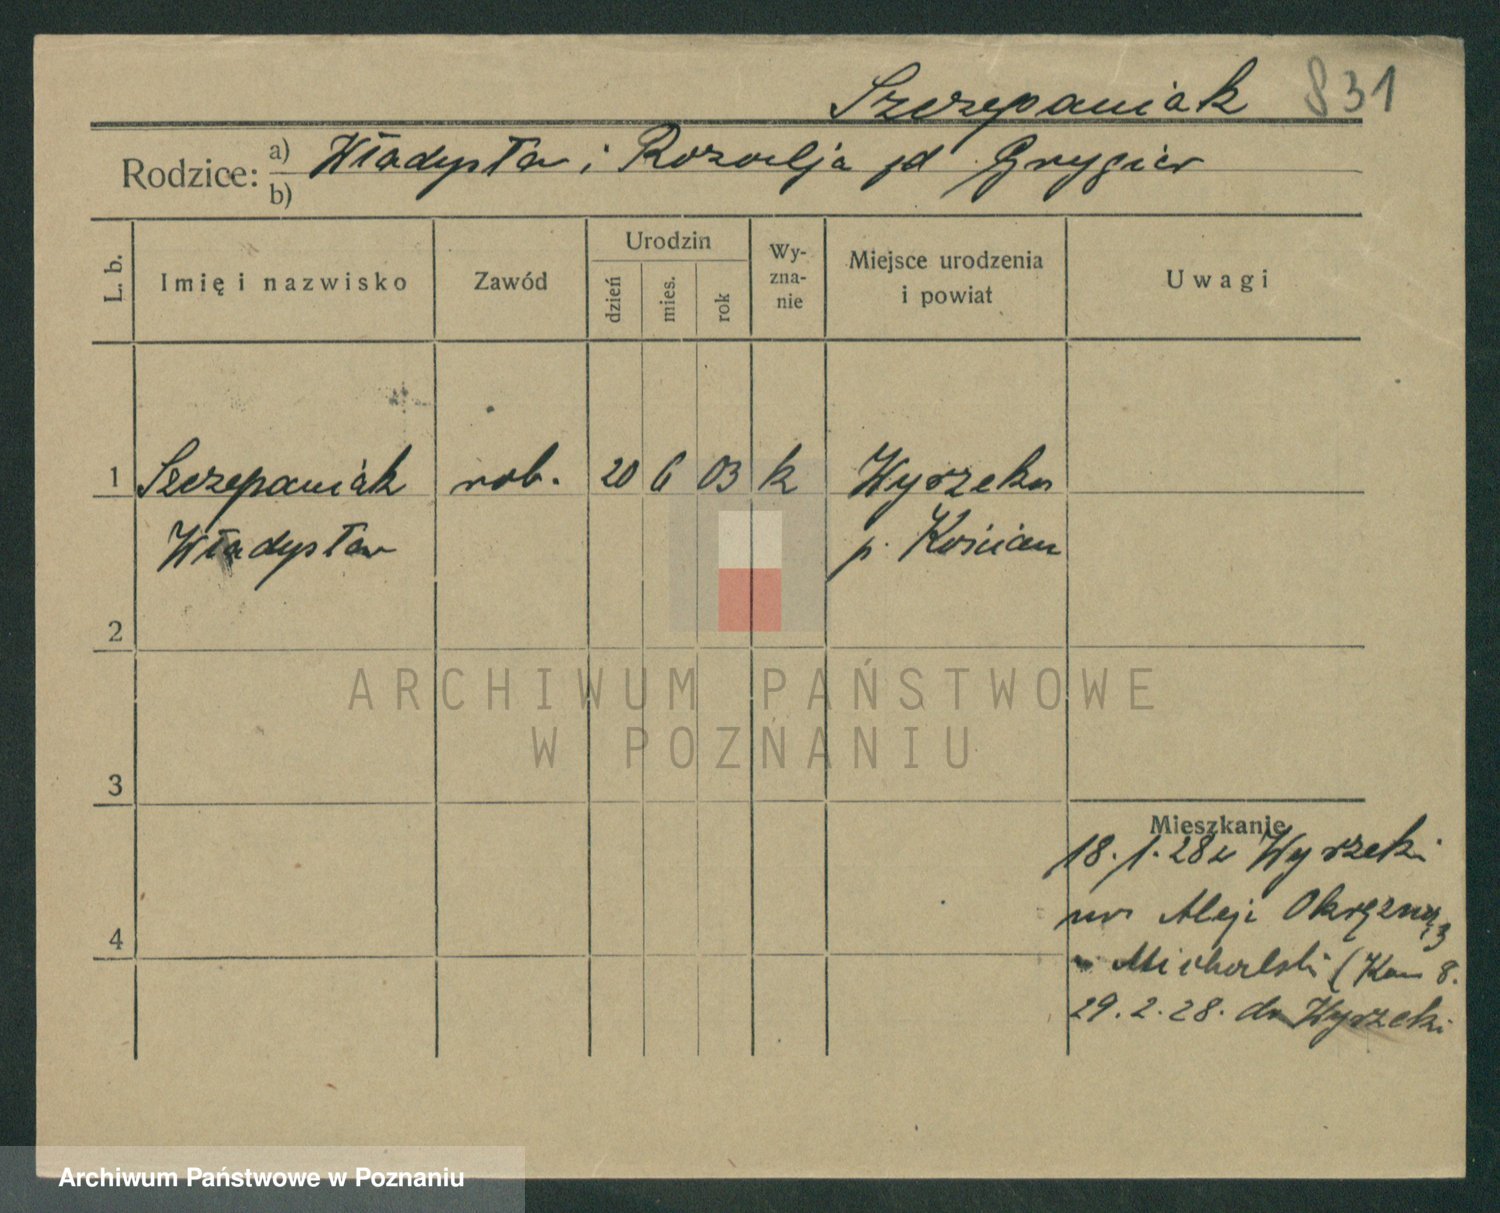 Szczepaniak 831
Rodzice: a) Władysław i Rozalja jd Grygier
b)
L. b. Imię i nazwisko Zawód Urodzin dzień mies. rok Wy-zna-nie Miejsce urodzenia i powiat Uwagi
1 Szczepaniak rob. 20 6 03 k Wyrzeka
Władysław p. Kościan
2
ARCHIWUM PAŃSTWOWE
W POZNANIU
3
Mieszkanie
18.1.28 z Wyrzeki
Aleji Okrężną 3
Michalski (Kam 8.
4
29.2.28. do Wyrzeki
Archiwum Państwowe w Poznaniu